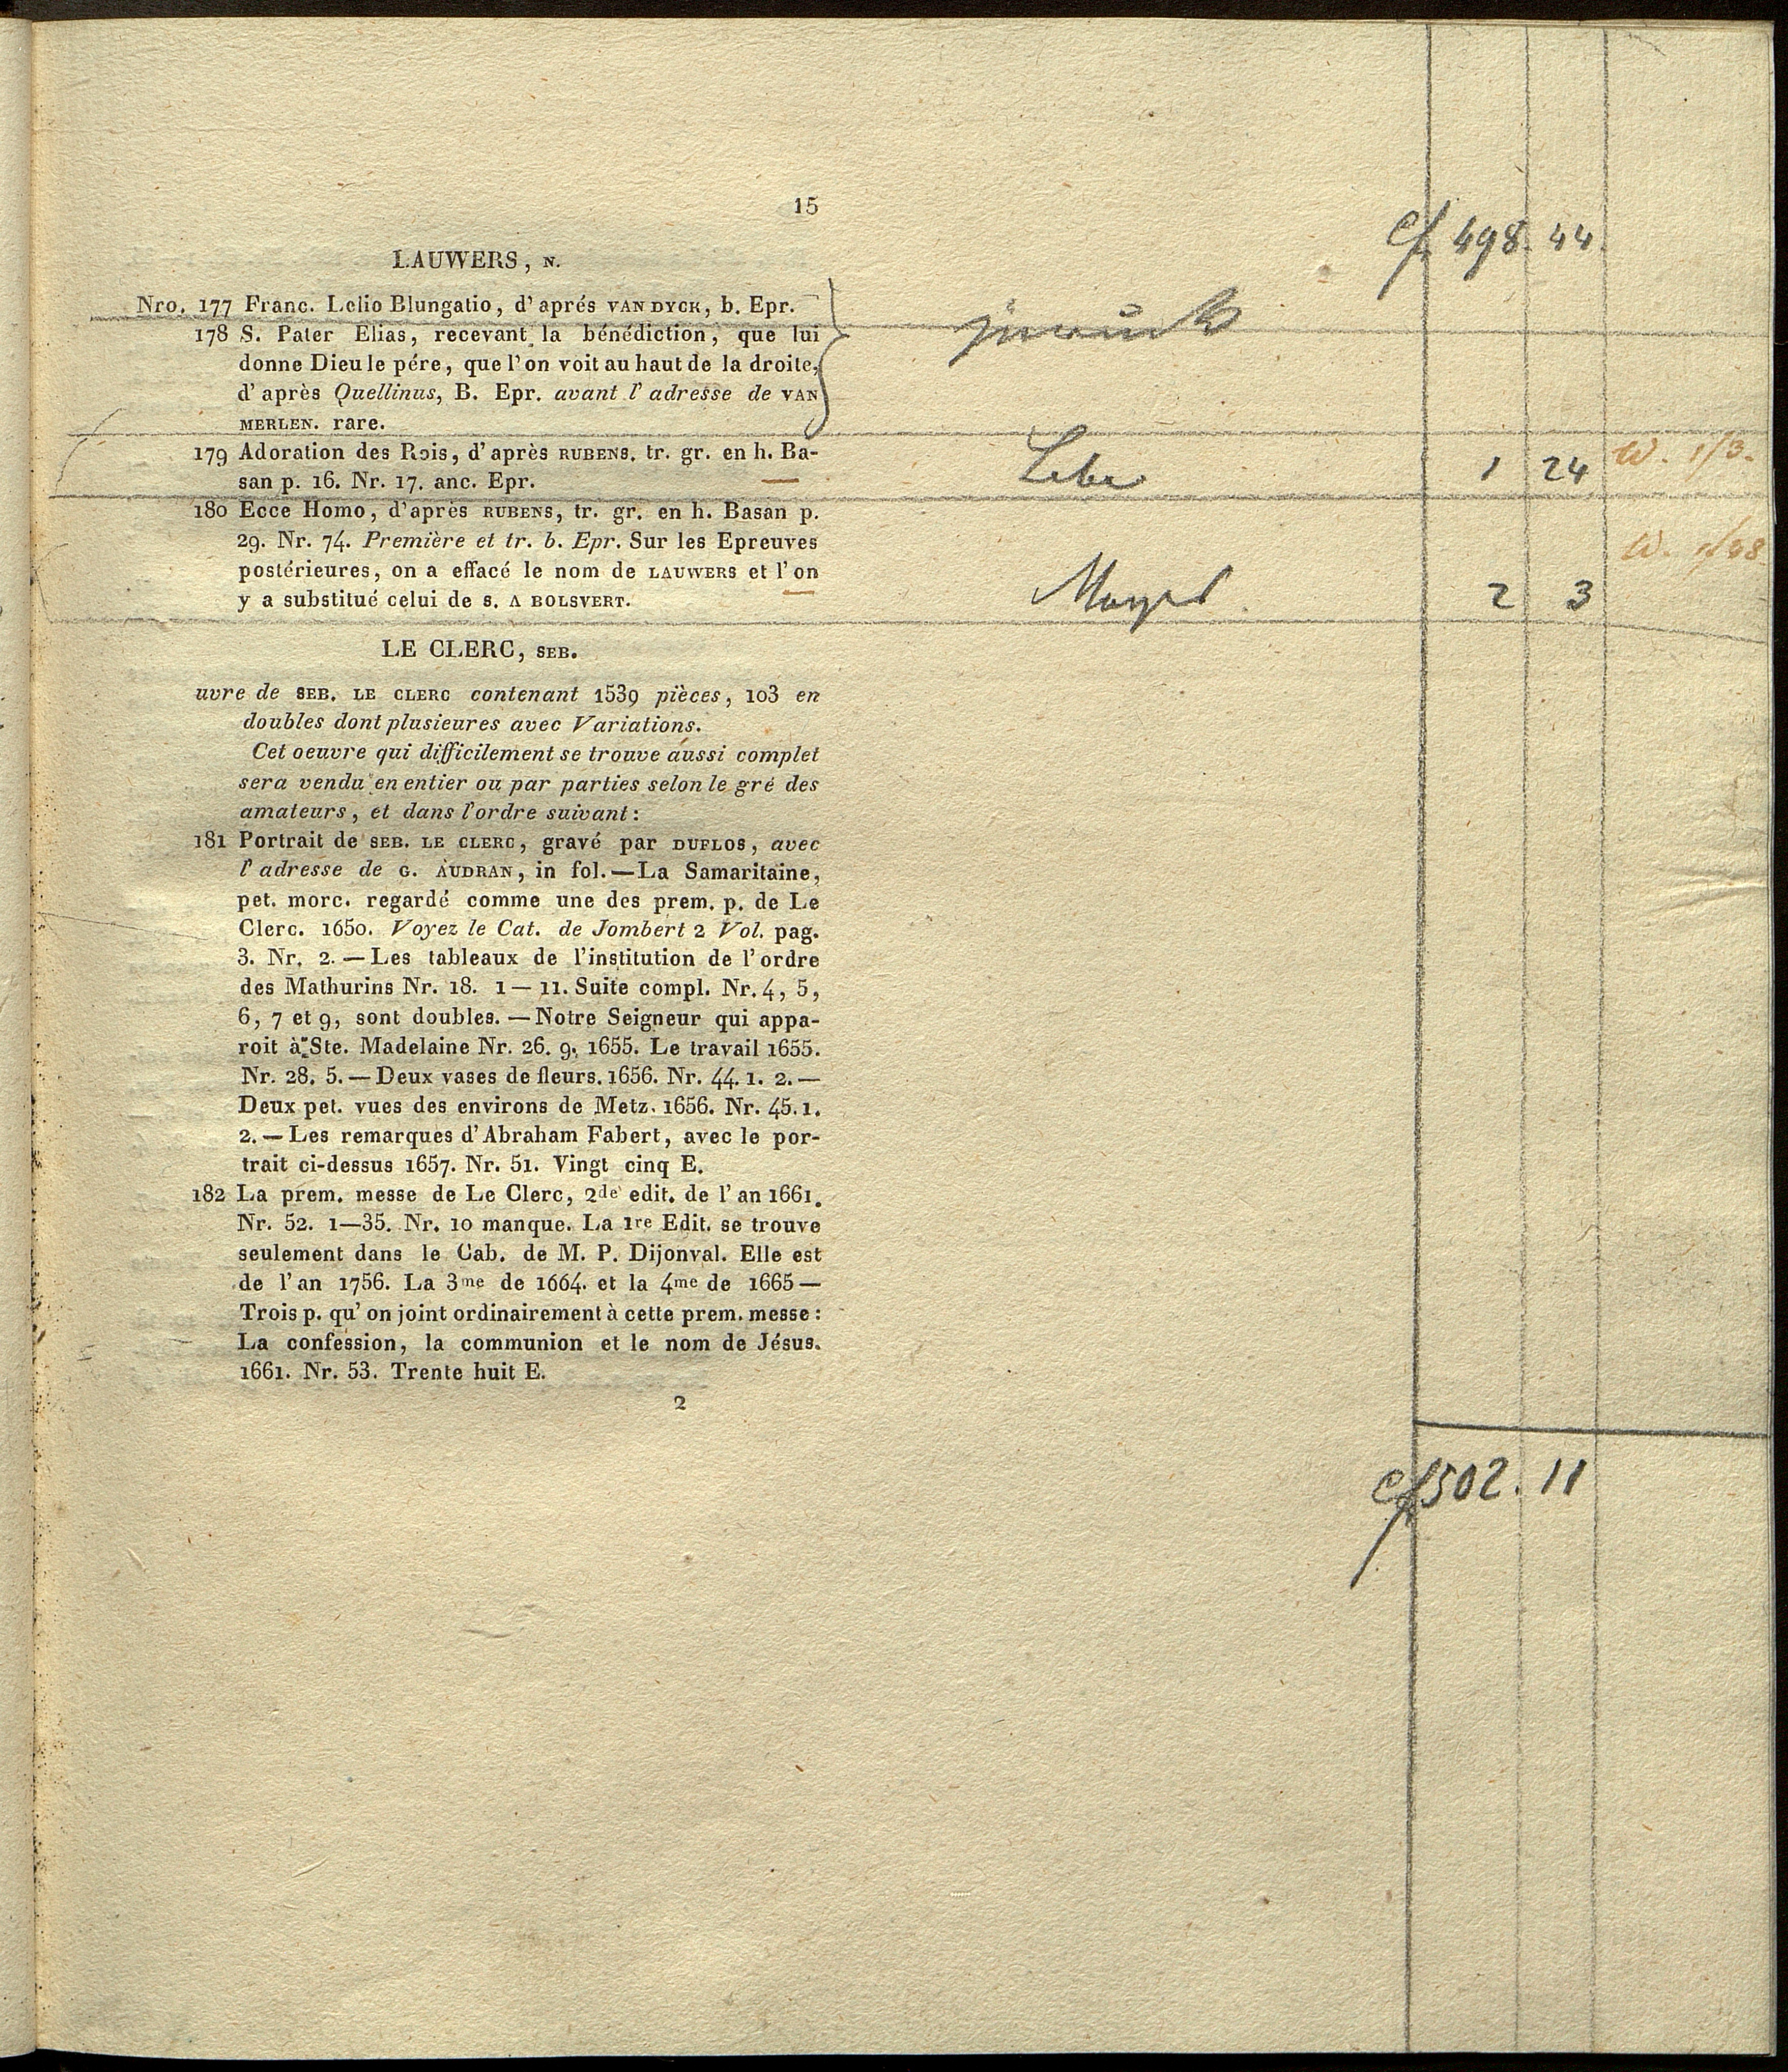 15
cf 498. 44.
LAUWERS, N.
Nro. 177 Franc. Lelio Blungatio, d'aprés VAN DYCK, b. Epr.
178 S. Pater Elias, recevant la bénédiction, que lui
donne Dieu le pére, que l'on voit au haut de la droite,
d'après Quellinus, B. Epr. avant l'adresse de VAN
MERLEN. rare.
179 Adoration des Rois, d'après RUBENS. tr. gr. en h. Ba-
san p. 16. Nr. 17. anc. Epr. —
1 24
180 Ecce Homo, d'après RUBENS, tr. gr. en h. Basan p.
29. Nr. 74. Première et tr. b. Epr. Sur les Epreuves
postérieures, on a effacé le nom de LAUWERS et l'on
y a substitué celui de S. A BOLSVERT. —
2 3
LE CLERC, SEB.
uvre de SEB. LE CLERC contenant 1539 pièces, 103 en
doubles dont plusieures avec Variations.
Cet oeuvre qui difficilement se trouve aussi complet
sera vendu en entier ou par parties selon le gré des
amateurs, et dans l'ordre suivant:
181 Portrait de SEB. LE CLERC, gravé par DUFLOS, avec
l'adresse de G. AUDRAN, in fol.—La Samaritaine,
pet. morc. regardé comme une des prem. p. de Le
Clerc. 1650. Voyez le Cat. de Jombert 2 Vol. pag.
3. Nr. 2.—Les tableaux de l'institution de l'ordre
des Mathurins Nr. 18. 1—11. Suite compl. Nr. 4, 5,
6, 7 et 9, sont doubles.—Notre Seigneur qui appa-
roit à Ste. Madelaine Nr. 26. 9. 1655. Le travail 1655.
Nr. 28. 5.—Deux vases de fleurs. 1656. Nr. 44. 1. 2.—
Deux pet. vues des environs de Metz. 1656. Nr. 45. 1.
2.—Les remarques d'Abraham Fabert, avec le por-
trait ci-dessus 1657. Nr. 51. Vingt cinq E.
182 La prem. messe de Le Clerc, 2de edit. de l'an 1661.
Nr. 52. 1—35. Nr. 10 manque. La 1re Edit. se trouve
seulement dans le Cab. de M. P. Dijonval. Elle est
de l'an 1756. La 3me de 1664. et la 4me de 1665—
Trois p. qu'on joint ordinairement à cette prem. messe:
La confession, la communion et le nom de Jésus.
1661. Nr. 53. Trente huit E.
2
cf 502. 11